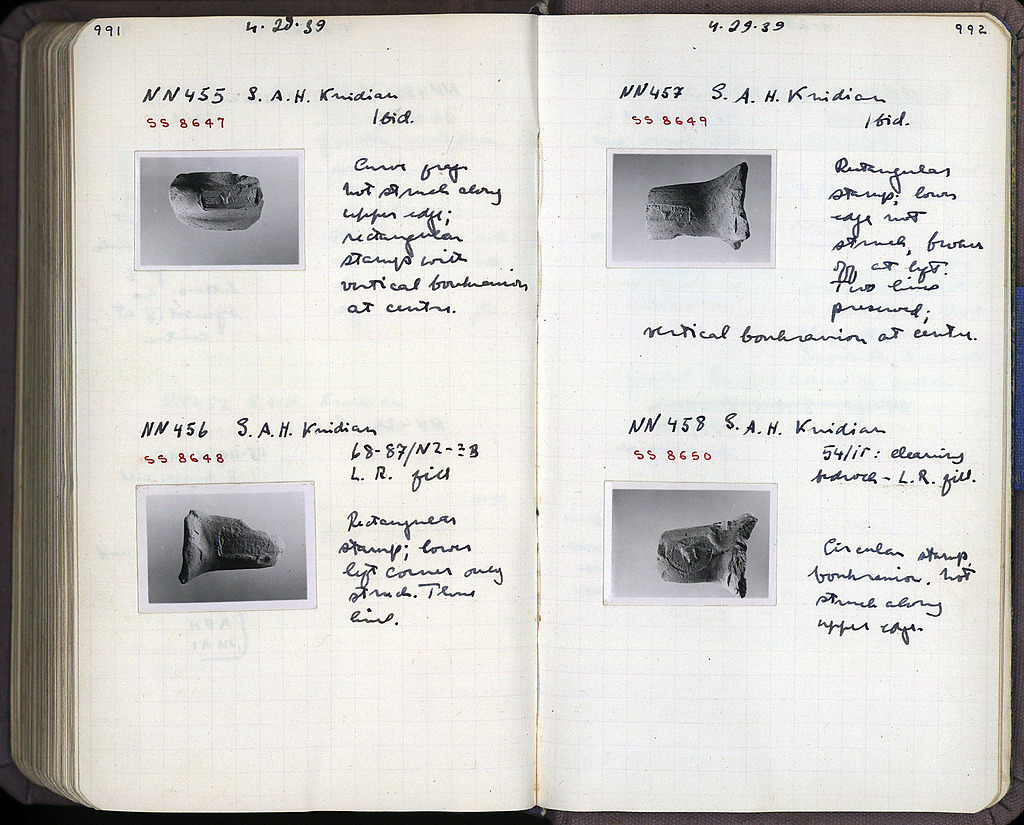 991
4·28·39
NN455 S. A. H. Knidian
SS 8647
Ibid.
Curve frag.
Not struck along
upper edge;
rectangular
stamp with
vertical boukranion
at centre.
NN456 S. A. H. Knidian
SS 8648
68-87/N2-ΞB
L. R. fill
Rectangular
stamp; lower
left corner only
struck. Three
lines.
4·29·39
992
NN457 S. A. H. Knidian
SS 8649
Ibid.
Rectangular
stamp; lower
edge not
struck, broken
off at left.
Two lines
preserved;
vertical boukranion at centre.
NN458 S. A. H. Knidian
SS 8650
cleaning
bedrock - L. R. fill.
Circular stamp,
boukranion. Not
struck along
upper edge.